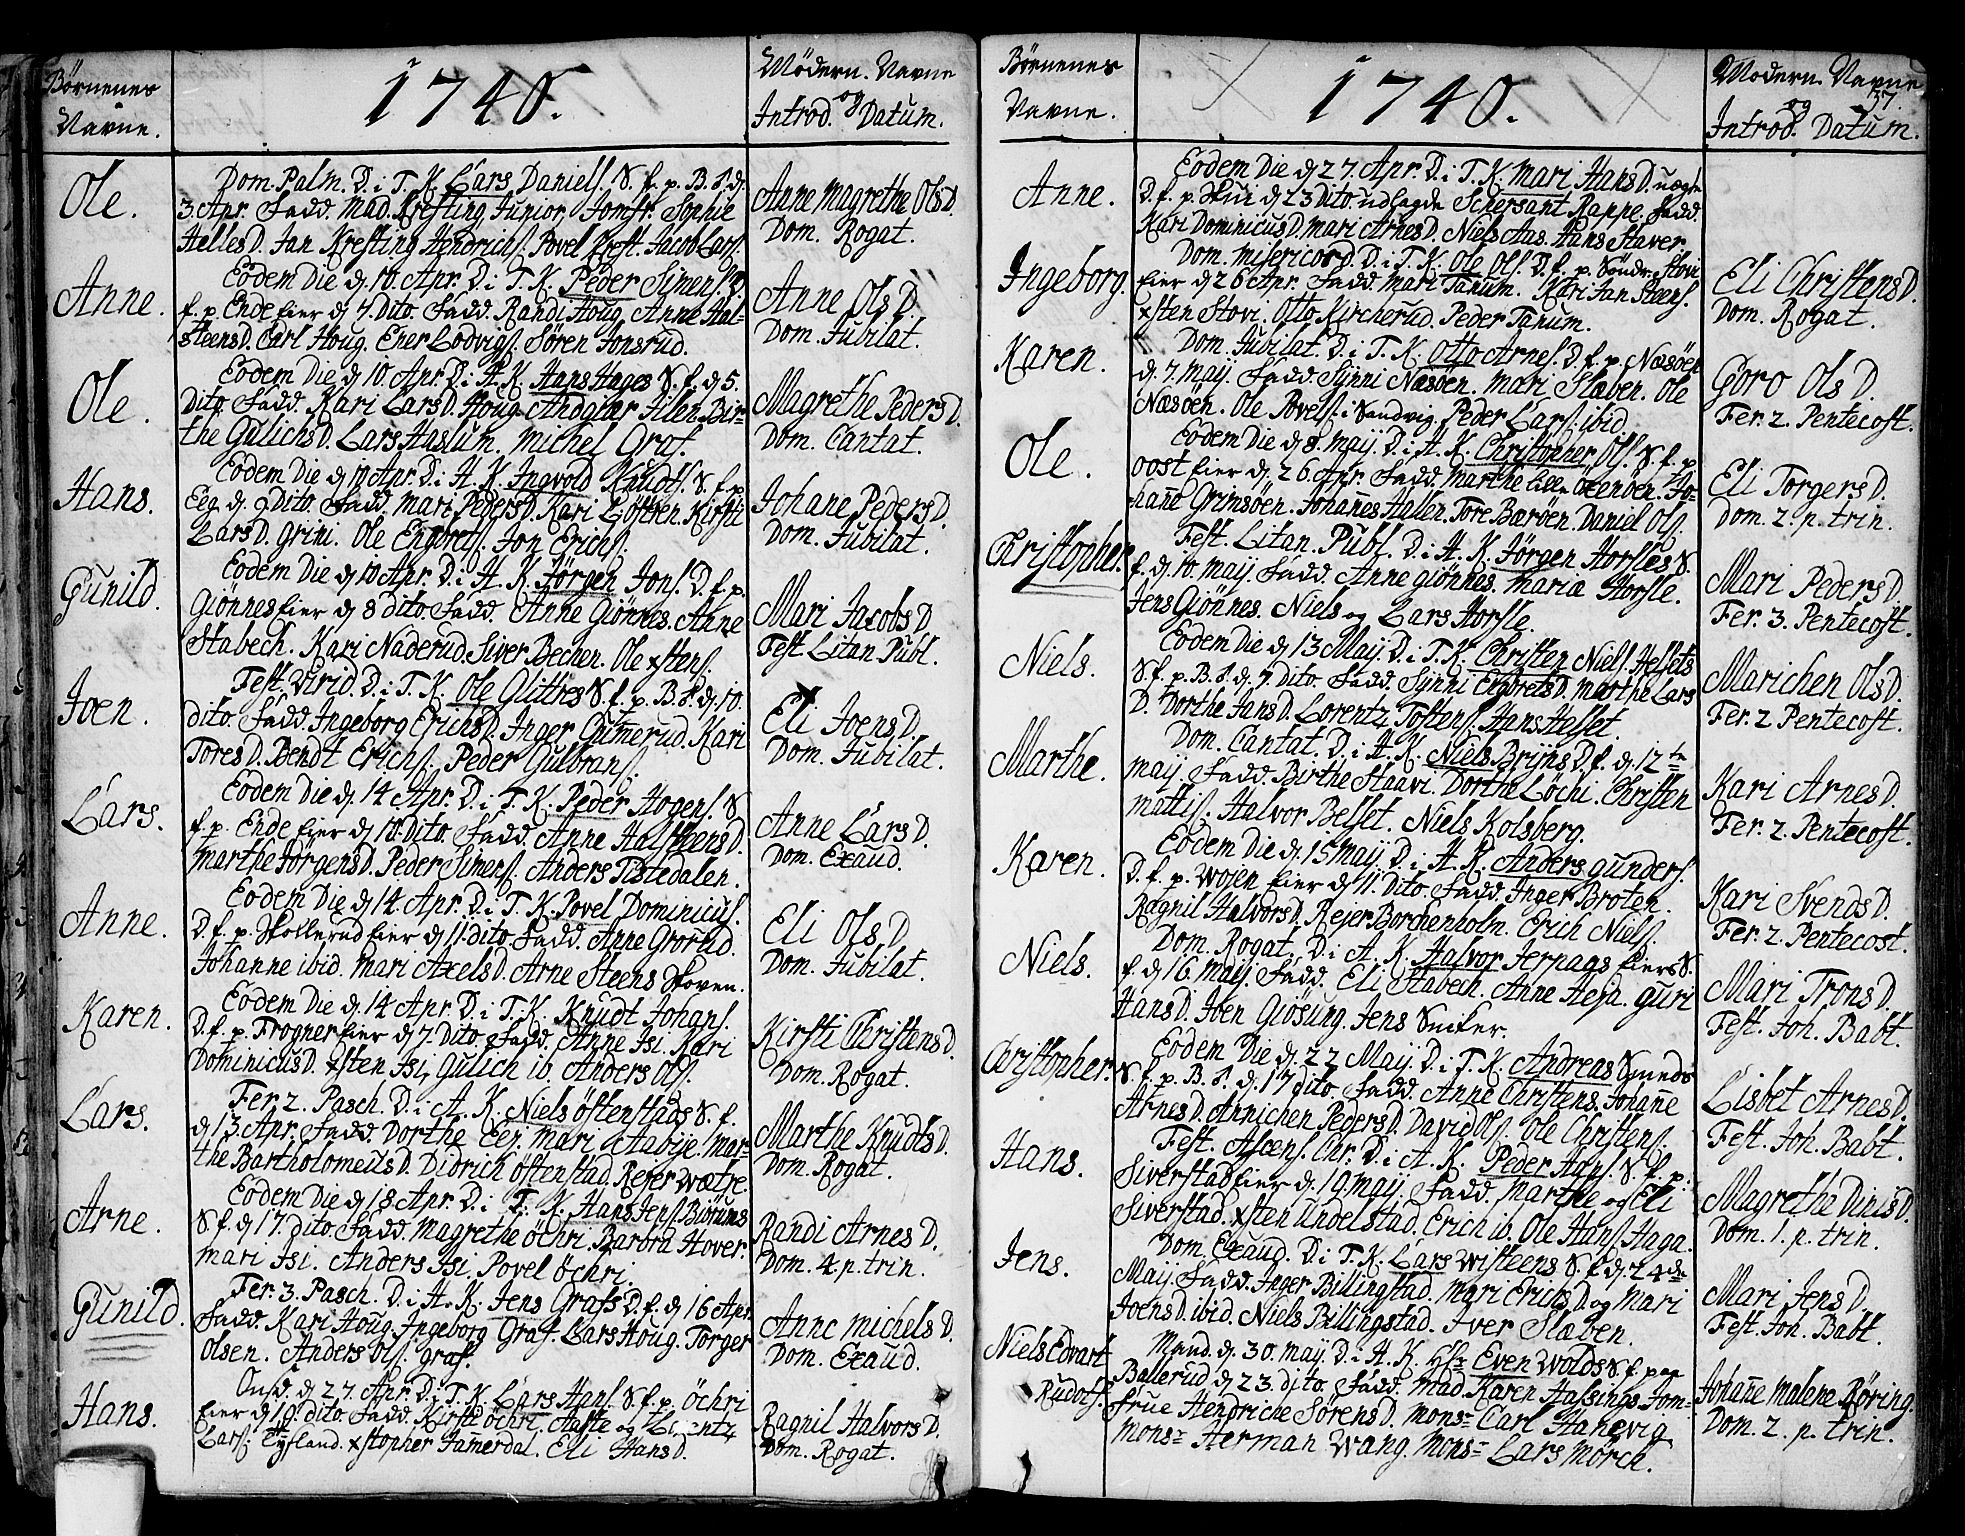 Børnenes
Navne.
1740.
Mödern. Navne
og
Introd. Datum.
Ole.
Dom. Palm. D. i T. K. Lars Daniels. S. f. p. B. S. d.
3. Apr. Fadd. Mad. Kresting Junior. Jomfr. Sophie
HellesD. Jan Kresting Hendrichs. Povel Prest. Jacob Lars.
Anne Magrethe OlsD.
Dom. Rogat.
Anne.
Eodem Die d. 10. Apr. D. i T. K. Peder Simens. D.
f. p. Ende Eier d. 7. Dito. Fadd. Randi Houg. Anne Hal-
steensD. Carl Houg. Ener Lodvigs. Sören Jonsrud.
Anne OlsD.
Dom. Jubilat.
Ole.
Eodem Die d. 10 Apr. D. i H. K. Hans Hages S. f. d. 5.
Dito. Fadd. Kari LarsD. Houg. Bir-
the GulichsD. Lars Haslum. Michel Graf.
Magrethe PedersD.
Dom. Cantat.
Hans.
Eodem Die d. 10 Apr. D. i H. K. Ingvold Knudts. S. f. p.
Eeg d. 9 Dito. Fadd. Mari PedersD. Kari Kirsti
LarsD. Grini. Ole Engbrets. Jon Erichs.
Johane PedersD.
Dom. Jubilat.
Gunild.
Eodem Die d. 10 Apr. D. i H. K. Jörgen Jons. D. f. p.
Giönnes Eier d. 8 Dito. Fadd. Anne Giönnes. Anne
Stabech. Kari Naderud. Siver Bechen. Ole xstens.
Mari JacobsD
Fest Litan. Publ.
Joen.
Fest. Virid. D. i T. K. Ole Glittres S. f. p. B. S. d. 10.
Dito. Fadd. Ingeborg ErichsD. Inger Gumerud. Kari
ToresD. Bendt Erichs. Peder Gulbrans.
Eli JoensD.
Dom. Jubilat.
Lars.
Eodem Die d. 14 Apr. D. i T. K. Peder Hogens. S
f. p. Ende Eier d. 10. Dito. Fadd. Anne HalsteensD.
Marthe JörgensD. Peder Simens. Anders Tistedalen.
Anne LarsD.
Dom. Exaud.
Anne.
Eodem Die d. 14 Apr. D. i T. K. Povel Dominicus.
D. f. p. Skollerud Eier d. 11. dito. Fadd. Anne Grorud.
Johanne ibid. Mari AxelsD. Arne Steens Skoven.
Eli OlsD
Dom. Jubilat.
Karen.
Eodem Die d. 14 Apr. D. i T. K. Knudt Johans.
D. f. p. Frogner Eier d. 7. Dito. Fadd. Anne Isi. Kari
DominicusD. xsten Isi, Gulich ib. Anders Ols.
Kirsti ChristensD.
Dom. Rogat.
Lars.
Fer. 2. Pasch. D. i A. K. Niels Östenstads S. f.
d 13 Apr. Fadd. Dorthe Eeg. Mari Aabije. Mar-
the BartholomeusD. Didrich Östenstad. Rejer Wætre.
Marthe KnudtsD.
Dom. Rogat.
Arne.
Eodem Die d. 18 Apr. D. i T. K. Hans Jens Biörums
S. f. d. 17. Dito. Fadd. Magrethe Öchri. Barbra Hover.
Mari Isi. Anders Isi. Povel Öchri.
Randi ArnesD.
Dom. 4. p. trin.
Gunild.
Fer. 3. Pasch. D. i H. K. Jens Grafs D. f. d 16 Apr.
Fadd. Kari Houg. Ingeborg Graf. Lars Houg. Torger
Olsen. Anders Ols. Graf.
Anne MichelsD.
Dom. Exaud.
Hans.
Onsd. d. 27. Apr. D. i T. K. Lars Hans. S. f. p. Öchri
Eier d. 19. dito. Fadd. Kirsti Öchri, Aaste og
Lars. Tyfland. xstopher Jamerdal. Eli HansD.
Ragnil HalvorsD.
Dom. Rogat.
Børnenes
Navne.
1740.
Modern. Navne
37.
og
Introd. Datum.
Anne.
Eodem Die d. 27. Apr. D. i T. K. Mari HansD. uægte
D. f. p. Skui d. 23 Dito udlagde Schersant Rappe. Fadd.
Kari DominicusD. Mari ArnesD. Niels Aas. Hans Staver
Ingeborg.
Dom. Misericord. D. i T. K. Ole Ols. D. f. p. Söndr. Stovi
Eier d. 26 Apr. Fadd. Mari Tanum. Kari Jan Steens.
xsten Stovi. Otto Kircherud. Peder Tanum.
Eli ChristensD.
Dom. Rogat.
Karen.
Dom. Jubilat. D. i T. K. Otto Arnes. D. f. p. Næsöen
d. 7. Maij. Fadd. Synni Næsöen. Mari Slæben. Ole
Næsöen. Ole Povels. i Sandvig. Peder Lars. ibid.
Goro OlsD
Fer. 2. Pentecost.
Ole.
Eodem Die d. 8. Maij. D. i H. K. Christopher Ols. S. f. p.
Oost Eier d. 26 Apr. Fadd. Marthe Oxenöen. Jo-
hañe Grimsöen. Johañes Hallen. Tore Bæröen. Daniel Ols.
Eli TorgersD.
Dom. 2. p. trin.
Christopher.
Fest. Litan. Publ. D. i H. K. Jörgen Horsles S.
f. d. 10. Maij. Fadd. Anne Giönnes. Maria Horsle.
Jens Giönnes. Niels og Lars Horsle.
Mari PedersD.
Fer. 3. Pentecost.
Niels.
Eodem Die d. 13 Maij. D. i T. K. Christen Niels. Helsets
S. f. p. B. S. d. 7 dito. Fadd. Synni EngbretsD. Marthe Lars
D. Dorthe JansD. Lorentz Tostens. Hans Helset.
Marichen OlsD.
Fer. 2 Pentecost.
Marthe.
Dom. Cantat. D. i H. K. Niels Brijns D. f. d. 12te
Maij. Fadd. Birthe Staavi. Dorthe Löchi. Christen
Mattis. Halvor Belset. Niels Kolsberg.
Kari ArnesD.
Fer. 2. Pentecost.
Karen.
Eodem Die d. 15 Maij. D. i H. K. Anders Gunders.
D. f. p. Wojen Eier d. 11. Dito. Fadd. Inger Broten.
Ragnil HalvorsD. Rejer Borchenholm. Erich Niels.
Kari SvendsD.
Fer. 2. Pentecost.
Niels.
Dom. Rogat. D. i A. K. Halvor Jerpags Eiers S.
f. d 16. Maij. Fadd. Eli Stabech. Anne Heja. Guri
HansD. Iben Giösung. Jens Snifer.
Mari TronsD.
Fest. Joh. Babt.
Christopher.
Eodem Die d. 22 Maij. D. i T. K. Andreas Smeds
S. f. p. B. S. d. 17 dito. Fadd. Anne Christens. Johane
ArnesD. Annichen PedersD. David Ols. Ole Christens.
Lisbet ArnesD.
Fest. Joh. Babt.
Hans.
Fest. Ascens. Chr. D. i A. K. Peder Hans. S. f. p.
Siverstad Eier d. 19. Maij. Fadd. Marthe og Eli
Siverstad. xsten Undelstad. Erich ib. Ole Hans. Haga.
Magrethe DinisD.
Dom. 1. p. trin.
Jens.
Dom. Exaud. D. i T. K. Lars Wisteens S. f. d. 24de
Maij. Fadd. Inger Billingstad. Mari ErichsD. og Mari
JoensD. ibid. Niels Billingstad. Iver Slæben.
Mari JensD.
Fest. Joh. Babt.
Niels Edvart
Rudolf.
Mand. d. 30. Maij. D. i H. K. Hr. Even Wolds S. f. paa
Ballerud d. 23. dito. Fadd. Mad. Karen Hassings. Jom-
frue Hendriche SörensD. Mons. Carl Hanevig
Mons. Herman Wang. Mons. Lars Mörch.
Johañe Malene Röring.
Dom. 2. p. trin.